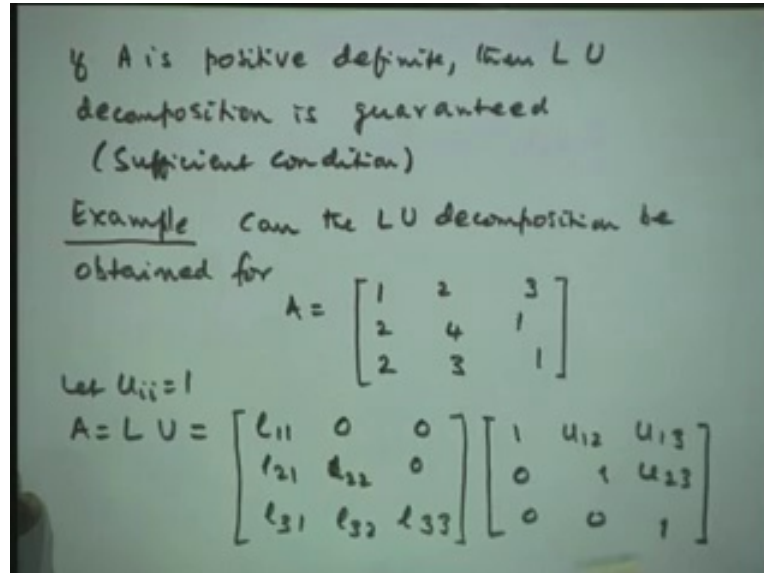 If A is positive definite, then L U
decomposition is guaranteed
(Sufficient condition)
Example Can the LU decomposition be
obtained for
A = [ 1 2 3
2 4 1
2 3 1 ]
Let u_ii = 1
A = L U = [ l_11 0 0 ] [ 1 u_12 u_13 ]
[ l_21 l_22 0 ] [ 0 1 u_23 ]
[ l_31 l_32 l_33 ] [ 0 0 1 ]